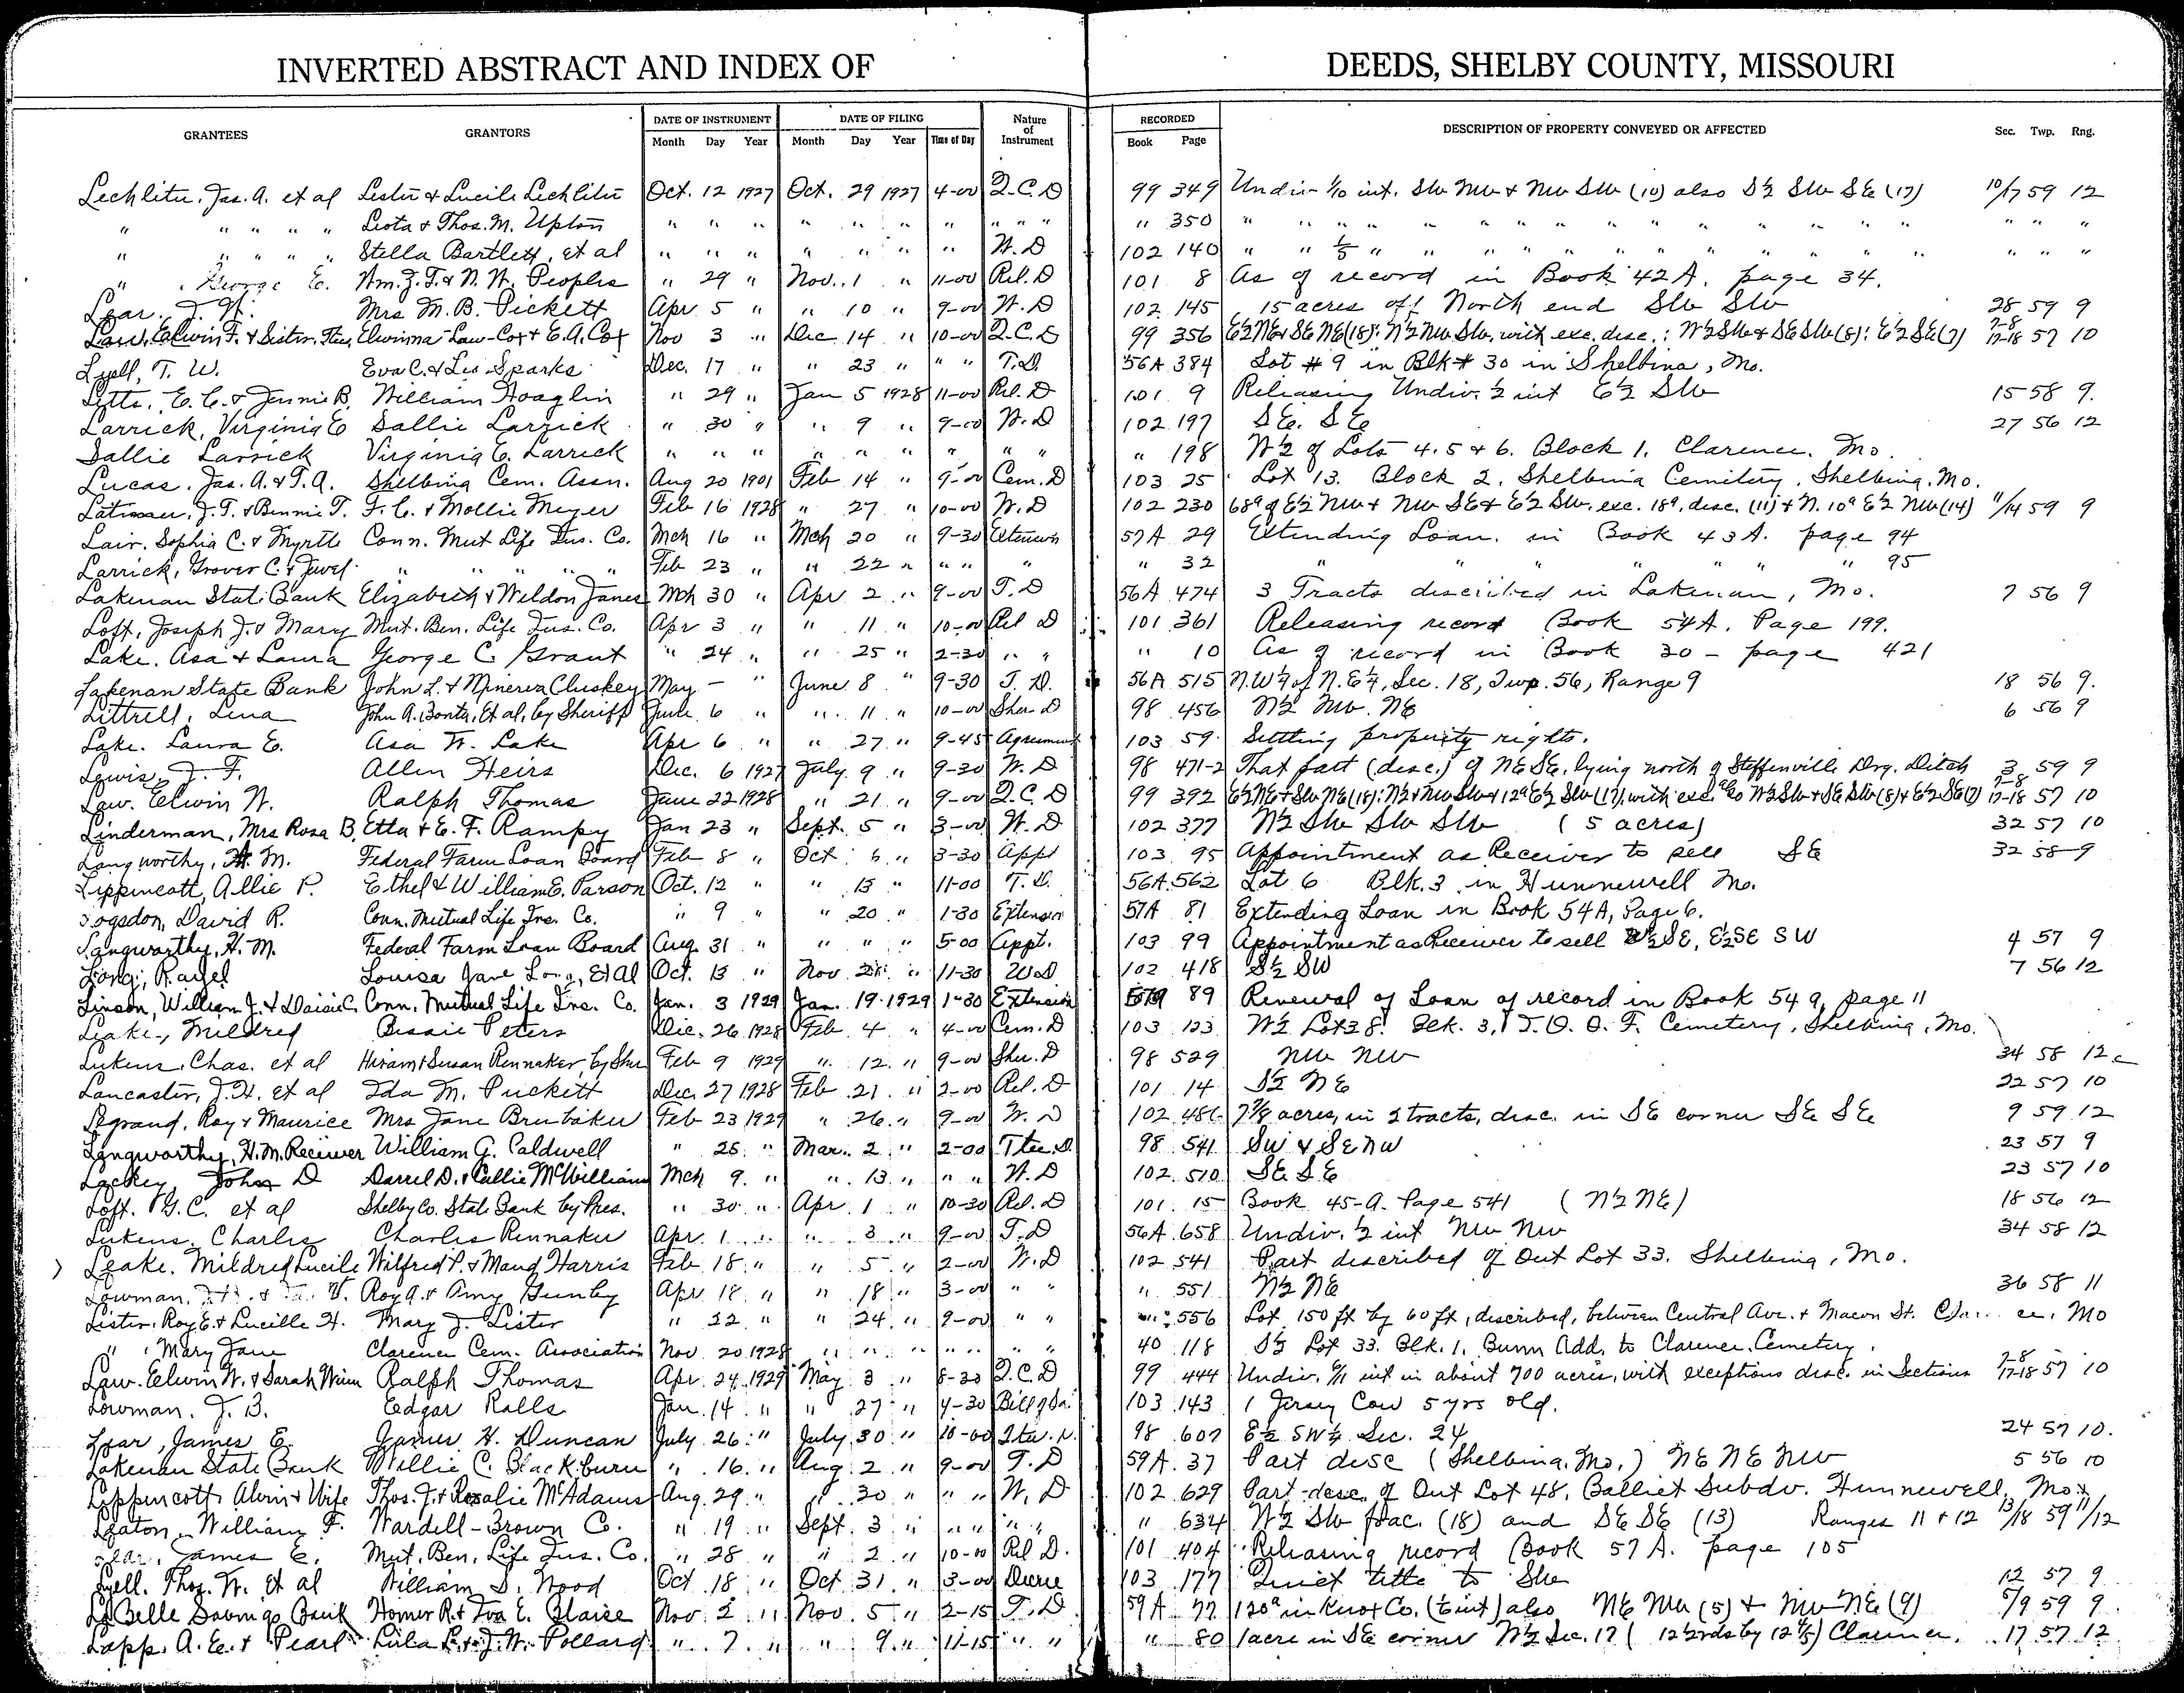 INVERTED ABSTRACT AND INDEX OF DEEDS, SHELBY COUNTY, MISSOURI
GRANTEES GRANTORS DATE OF INSTRUMENT Month Day Year DATE OF FILING Month Day Year Time of Day Nature of Instrument RECORDED Book Page DESCRIPTION OF PROPERTY CONVEYED OR AFFECTED Sec. Twp. Rng.
Lechliter, Jas. A. et al Lester & Lucile Lechliter Oct. 12 1927 Oct. 29 1927 4-00 Q.C.D 99 349 Undiv 1/10 int. SW NW & NW SW (10) also S½ SW SE (17) 10/17 59 12
" " " " " Leota & Thos. M. Upton " " " " " " " " " " " 350 " " " " " " " " " " " " " " "
" " " " " Stella Bartlett, et al " " " " " " " W.D 102 140 " " 1/5 " " " " " " " " " " " " "
" . George E. Wm. Z. T. & N. W. Peoples " 29 " Nov. 1 " 11-00 Rel. D 101 8 As of record in Book 42A. page 34.
Lear. J. W. Mrs M. B. Pickett Apr 5 " " 10 " 9-00 W.D 102 145 15 acres off North end SW SW 28 59 9
Law, Elwin F. & Sister, Elwinna Law-Cox & E. A. Cox Nov 3 " Dec 14 " 10-00 Q.C.D 99 356 E½ NE & SE NE (18): N½ NW SW, with exc. desc.: N½ SW & SE SW (8): E½ SE (7) 7-8 17-18 57 10
Lyell, T. W. Eva C. & Leo Sparks Dec. 17 " " 23 " " " T.D. 56A 384 Lot #9 in Blk #30 in Shelbina, Mo.
Letts. E. C. & Jennie B. William Hoaglin " 29 " Jan 5 1928 11-00 Rel. D 101 9 Releasing Undiv. ½ int E½ SW 15 58 9.
Larrick, Virginia E Sallie Larrick " 30 " " 9 " 9-00 W.D 102 197 SE. SE 27 56 12
Sallie Larrick Virginia E. Larrick " " " " " " " " " " 198 W½ of Lots 4.5 & 6. Block 1. Clarence. Mo.
Lucas. Jas. A. & T. A. Shelbina Cem. Assn. Aug 20 1901 Feb 14 " 9-00 Cem. D 103 25 Lot 13. Block 2. Shelbina Cemetery, Shelbina, Mo.
Latimer, J. T. & Bennie T. F. C. & Mollie Meyer Feb 16 1928 " 27 " 10-00 W.D 102 230 68ª of E½ NW & NW SE & E½ SW. exc. 18ª, desc. (11) & N. 10ª E½ NW (14) 11/14 59 9
Lair. Sophia C. & Myrtle Conn. Mut Life Ins. Co. Mch 16 " Mch 20 " 9-30 Extension 57A 29 Extending Loan. in Book 43A. page 94
Larrick, Grover C. & Jewel " " " " " Feb 23 " " 22 " " " " " 32 " " " " " 95
Lakenan State Bank Elizabeth & Weldon Janes Mch 30 " Apr 2 " 9-00 T.D 56A 474 3 Tracts described in Lakenan, Mo. 7 56 9
Loft, Joseph J. & Mary Mut. Ben. Life Ins. Co. Apr 3 " " 11 " 10-00 Rel D 101 361 Releasing record Book 54A. Page 199.
Lake. Asa & Laura George C. Grant " 24 " " 25 " 2-30 " " " 10 As of record in Book 30 - page 421
Lakenan State Bank John L. & Minerva Cluskey May - " June 8 " 9-30 T.D. 56A 515 N.W¼ of N.E¼, Sec. 18, Twp. 56, Range 9 18 56 9.
Littrell, Lena John A. Bonta, Et al, by Sheriff June 6 " " 11 " 10-00 Sher. D 98 456 N½ NW. NE 6 56 9
Lake. Laura E. Asa W. Lake Apr 6 " " 27 " 9-45 Agreement 103 59 Settling property rights.
Lewis, J. F. Allen Heirs Dec. 6 1927 July 9 " 9-30 W.D 98 471-2 That part (desc.) of NE SE, lying north of Steffenville Drg. Ditch 3 59 9
Law. Elwin W. Ralph Thomas June 22 1928 " 21 " 9-00 Q.C.D 99 392 E½ NE & SW NE (18): N½ NW SW & 12ª E½ SW (17), with exc. also N½ SW & SE SW (8) & E½ SE (7) 7-8 17-18 57 10
Linderman, Mrs Rosa B. Etta & E. F. Rampy Jan 23 " Sept. 5 " 3-00 W.D 102 377 N½ SW SW SW (5 acres) 32 57 10
Langworthy, H. M. Federal Farm Loan Board Feb 8 " Oct 6 " 3-30 Appt 103 95 Appointment as Receiver to sell SE 32 58 9
Lippincott, Allie P. Ethel & William E. Parson Oct. 12 " " 15 " 11-00 T.D. 56A 562 Lot 6 Blk. 3 in Hunnewell Mo.
Logsdon, David R. Conn. Mutual Life Ins. Co. " 9 " " 20 " 1-30 Extension 57A 81 Extending Loan in Book 54A, Page 6.
Langworthy, H. M. Federal Farm Loan Board Aug. 31 " " " " 5-00 Appt. 103 99 Appointment as Receiver to sell W½ SE, E½ SE SW 4 57 9
Long, Ragel Louisa Jane Long, Et Al Oct. 13 " Nov " 11-30 W.D 102 418 S½ SW 7 56 12
Linson, William J. & Daisie C. Conn. Mutual Life Ins. Co. Jan. 3 1929 Jan. 19 1929 1-30 Extension 57A 89 Renewal of Loan of record in Book 54A, page 11
Leake, Mildred Bessie Peters Dec. 26 1928 Feb 4 " 4-00 Cem. D 103 123 W½ Lot 38. Blk. 3, I.O.O.F. Cemetery, Shelbina, Mo.
Lukens, Chas. et al Hiram & Susan Rennaker, by Sher Feb 9 1929 " 12 " 9-00 Sher. D 98 529 NW NW 34 58 12
Lancaster, J. H. et al Ida M. Puckett Dec. 27 1928 Feb 21 " 2-00 Rel. D 101 14 S½ NE 22 57 10
Legrand, Roy & Maurice Mrs Jane Brubaker Feb 23 1929 " 26 " 9-00 W.D 102 486 7⅞ acres, in 2 tracts, desc. in SE corner SE SE 9 59 12
Langworthy, H. M. Receiver William G. Caldwell " 25 " Mar. 2 " 2-00 Ttee. D. 98 541 SW & SE NW 23 57 9
Lackey, John D Darrel D. & Callie McWilliams Mch 9 " " 13 " " " W.D 102 510 SE SE 23 57 10
Loft. G. C. et al Shelby Co. State Bank by Pres. " 30 " Apr 1 " 10-30 Rel. D 101 15 Book 45-A. Page 541 (N½ NE) 18 56 12
Lukens, Charles Charles Rennaker Apr. 1 " " 3 " 9-00 T.D 56A 658 Undiv. ½ int NW NW 34 58 12
Leake. Mildred Lucile Wilfred P. & Maud Harris Feb 18 " " 5 " 2-00 W.D 102 541 Part described of Out Lot 33. Shelbina, Mo.
Lowman, Roy A. & Amy Gunby Apr 18 " " 18 " 3-00 " " " 551 N½ NE 36 58 11
Lister, Roy E. & Lucille H. Mary J. Lister " 22 " " 24 " 9-00 " " " 556 Lot 150 ft by 60 ft, described, between Central Ave. & Macon St. Mo
" . Mary Jane Clarence Cem. Association Nov 20 1928 " " " " " " " 40 118 S½ Lot 33. Blk. 1. Bunn Add. to Clarence Cemetery.
Law. Elwin W. & Sarah Winn Ralph Thomas Apr. 24 1929 May 3 " 8-30 Q.C.D 99 444 Undiv. int in about 700 acres, with exceptions desc. in Sections 7-8 17-18 57 10
Lowman. J. B. Edgar Ralls Jan. 14 " " 27 " 4-30 Bill of Sa. 103 143 1 Jersey Cow 5 yrs old.
Lear, James E. James H. Duncan July 26 " July 30 " 10-00 98 607 E½ SW¼ Sec. 24 24 57 10.
Lakenan State Bank Willie C. Blackburn " 16 " Aug. 2 " 9-00 T.D 59A 37 Part desc (Shelbina, Mo.) NE NE NW 5 56 10
Lippincott Alvin & Wife Thos. J. & Rosalie McAdams Aug. 29 " " 30 " " " W.D 102 629 Part desc. of Out Lot 48. Balliet Subdv. Hunnewell, Mo
Leaton, William F. Wardell-Brown Co. " 19 " Sept. 3 " " " " " " 634 W½ SW frac. (18) and SE SE (13) Ranges 11 & 12 13/18 59 11/12
Lear, James E. Mut. Ben. Life Ins. Co. " 28 " " 2 " 10-00 Rel D. 101 404 Releasing record Book 57A. page 105
Lyell. Thos. W. et al William S. Wood Oct 18 " Oct 31 " 3-00 Decree 103 177 Quiet title to SW 12 57 9
La Belle Savings Bank Homer R. & Iva E. Blaise Nov. 2 " Nov. 5 " 2-15 T.D 59A 77 120ª in Knox Co. also NE NW (5) & NW NE (9) 5/9 59 9
Lapp. A. E. & Pearl Lula L. & J. W. Pollard " 7 " " 9 " 11-15 " " " 80 1 acre in SE corner N½ Sec. 17 (12½ rds by 12⅘) Clarence. 17 57 12